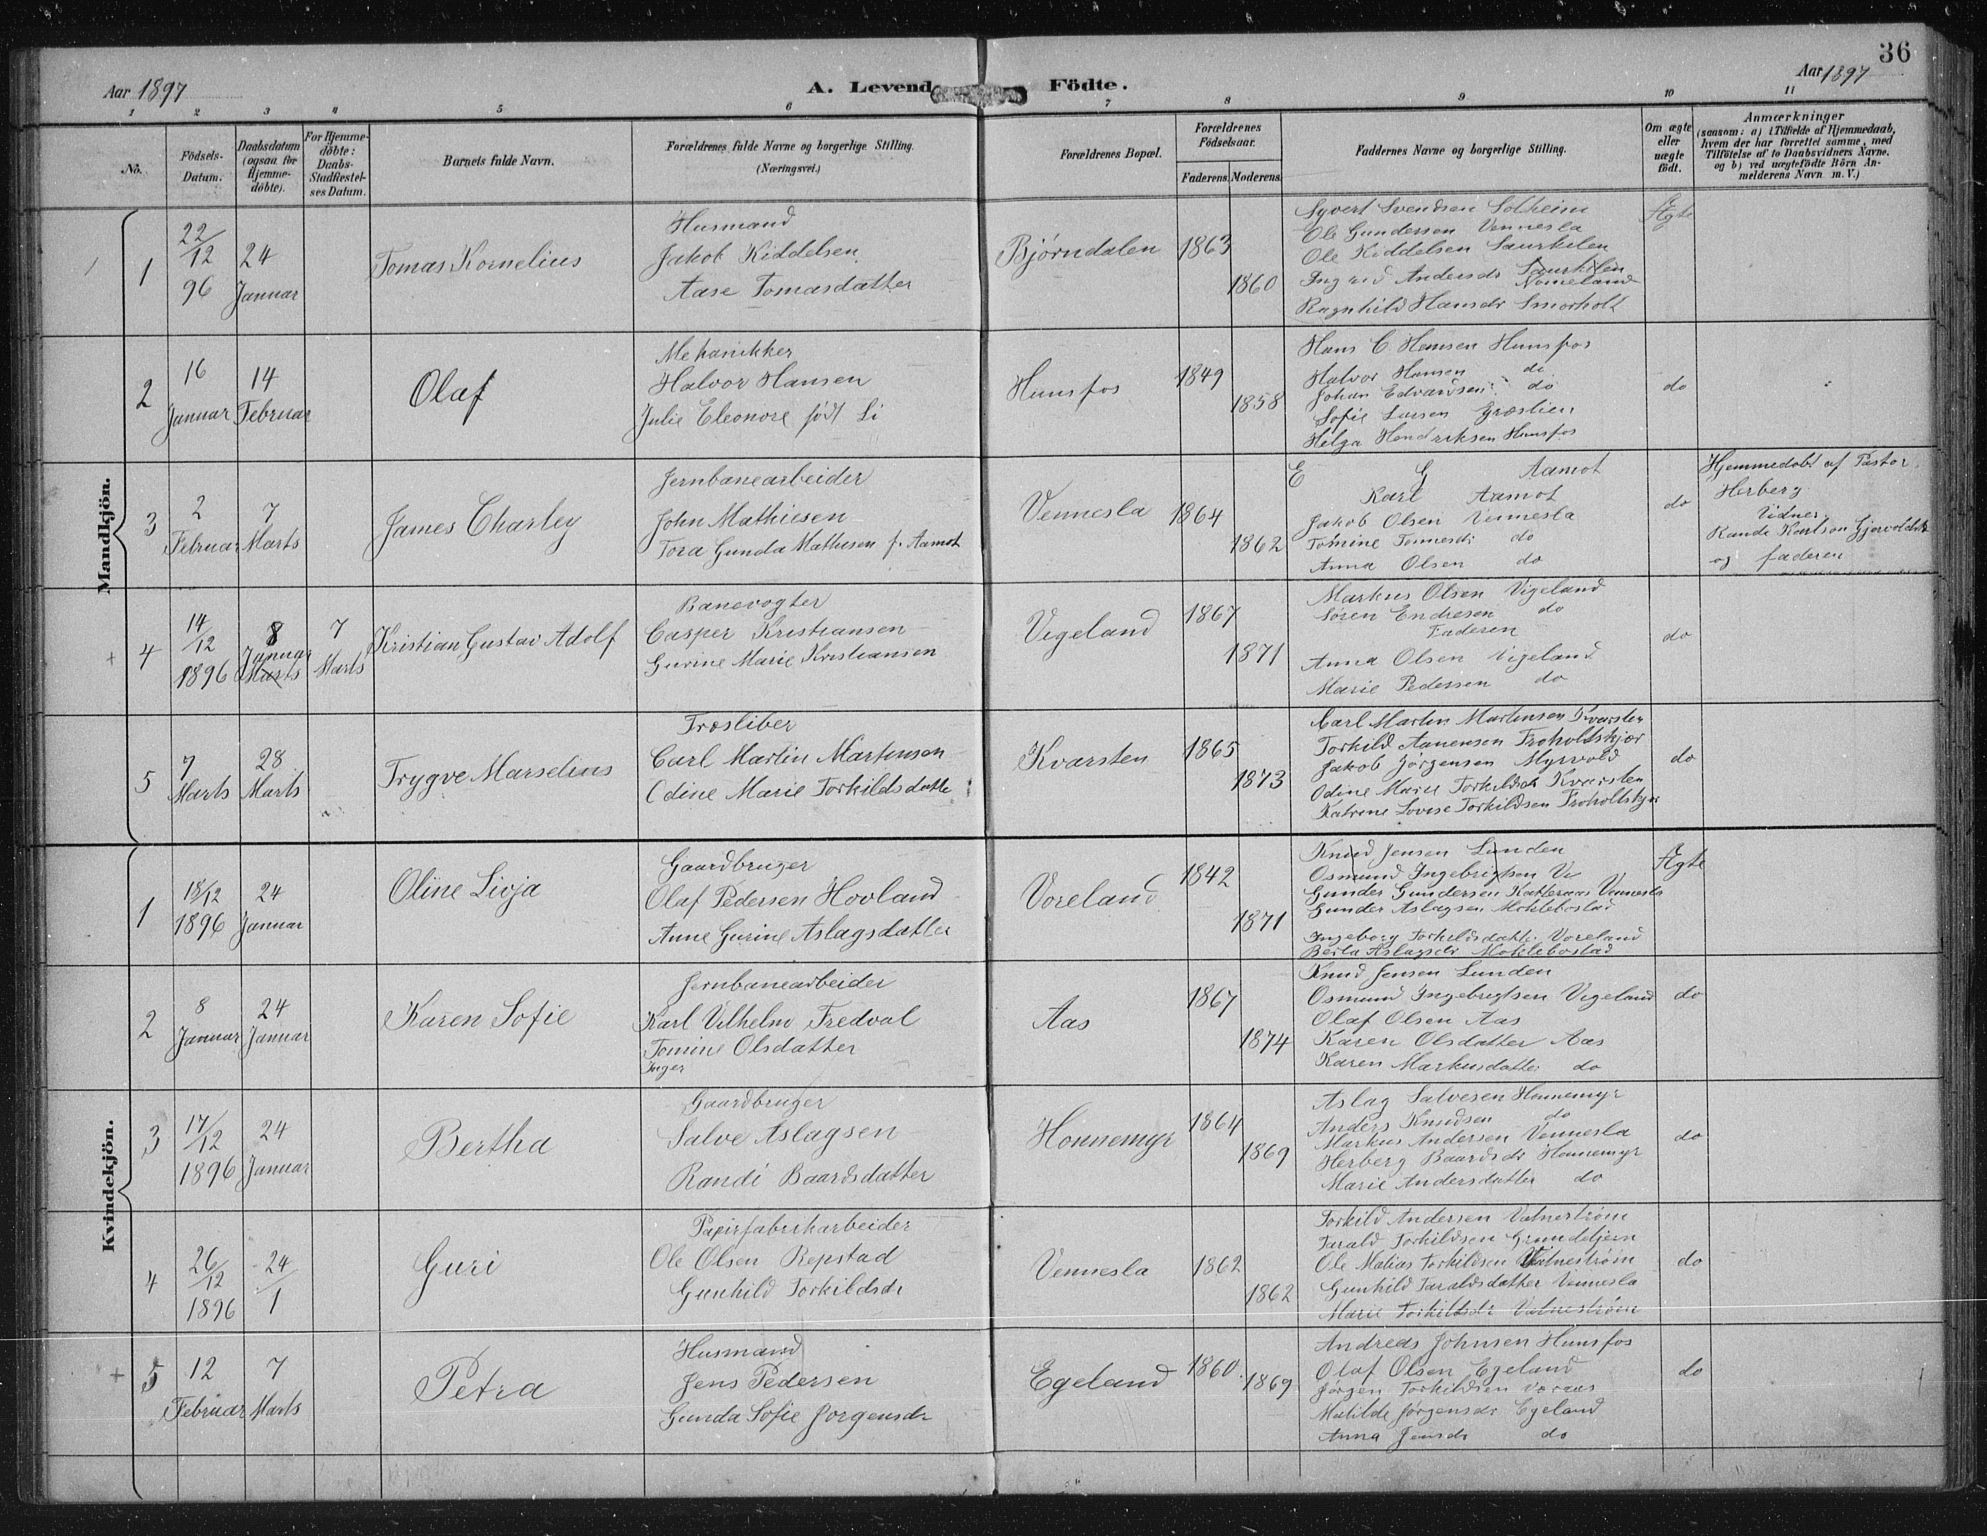 36
Aar 1897
A. Levende Födte.
Aar 1897
1 2 3 4 5 6 7 8 9 10 11
No.
Födsels-Datum.
Daabsdatum (ogsaa for Hjemme-döbte).
For Hjemme-döbte: Daabs-Stadfæstel-ses Datum.
Barnets fulde Navn.
Forældrenes fulde Navne og borgerlige Stilling. (Næringsvei.)
Forældrenes Bopæl.
Forældrenes Födselsaar.
Faderens. Moderens.
Faddernes Navne og borgerlige Stilling.
Om ægte eller uægte födt.
Anmærkninger
(saasom: a) i Tilfælde af Hjemmedaab, hvem der har forrettet samme, med Tilföielse af to Daabsvidners Navne, og b) ved uægtefödte Börn An-melderens Navn m. V.)
Mandkjön.
1
22/12 96
24 Januar
Tomas Kornelius
Husmand
Jakob Kiddelsen
Aase Tomasdatter
Bjørndalen
1863
1860
Syvert Svendsen Solheim
Ole Gundersen Vennesla
Ole Kiddelsen Saurkilen
Ingrid Andersdr Saurkilen Nomeland
Ragnhild Hansdr Smorholt
Ægte
2
16 Januar
14 Februar
Olaf
Mekanikker
Halvor Hansen
Julie Eleonore født Li
Hunsfos
1849
1858
Hans C. Hansen Hunsfos
Halvor Hansen do
Johan Edvardsen do
Sofie Larsen Græslien
Helga Hendriksen Hunsfos
do
3
2 Februar
7 Marts
James Charley
Jernbanearbeider
John Mathiesen
Tora Gunda Mathisen f. Aamot
Vennesla
1864
1862
E G Aamot
Karl Aamot
Jakob Olsen Vennesla
Tomine Tomesdr do
Anna Olsen do
do
Hjemmedøbt af Pastor
Herberg
Vidner
og faderen
4
14/12 1896
8 Januar Marts
7 Marts
Kristian Gustav Adolf
Banevogter
Casper Kristiansen
Gurine Marie Kristiansen
Vigeland
1867
1871
Markus Olsen Vigeland
Søren Endresen do
Faderen
Anna Olsen Vigeland
Marie Pedersen do
do
5
7 Marts
28 Marts
Trygve Marselius
Træsliber
Carl Martin Martinsen
Odine Marie Torkildsdatte
Kvarsten
1865
1873
Carl Martin Martinsen Kvarsten
Torkild Aanensen Froholtskjær
Jakob Jørgensen Myrvold
Odine Marie Torkildsdr Kvarsten
Katrine Lovise Torkildsen Froholtskjær
do
Kvindekjön.
1
18/12 1896
24 Januar
Oline Livja
Gaardbruger
Olaf Pedersen Hovland
Anne Gurine Aslagsdatter
Voreland
1842
1871
Knud Jensen Lunden
Osmund Ingebrigtsen Vi
Gunder Gundersen Katteraas Vennesla
Gunder Aslagsen Moklebostad
Ingeborg Torkildsdatter Voreland
Berta Aslagsdr Moklebostad
Ægte
2
8 Januar
24 Januar
Karen Sofie
Jernbanearbeider
Karl Vilhelm Fredval
Tomine Olsdatter
Inger
Aas
1867
1874
Knud Jensen Lunden
Osmund Ingebrigtsen Vigeland
Olaf Olsen Aas
Karen Olsdatter Aas
Karen Markusdatter do
do
3
17/12 1896
24 Januar
Bertha
Gaardbruger
Salve Aslagsen
Randi Baardsdatter
Honnemyr
1864
1869
Aslag Salvesen Honnemyr
Anders Knudsen do
Markus Andersen Vennesla
Herberg Baardsdr Honnemyr
Marie Andersdatter do
do
4
26/12 1896
24/1
Guri
Papirfabrikarbeider
Ole Olsen Repstad
Gunhild Torkildsdr
Vennesla
1862
1862
Torkild Andersen Vatnestrøm
Tarald Torkildsen Grundeljern
Ole Matias Torkildsen Vatnestrøm
Gunhild Taraldsdatter Vennesla
Marie Torkildsdr Vatnestrøm
do
5
12 Februar
7 Marts
Petra
Husmand
Jens Pedersen
Gunda Sofie Jorgensdr
Egeland
1860
1869
Andreas Johnsen Hunsfos
Olaf Olsen Egeland
Jørgen Torkildsen Voraas
Matilde Jørgensdr Egeland
Anna Jensdr do
do